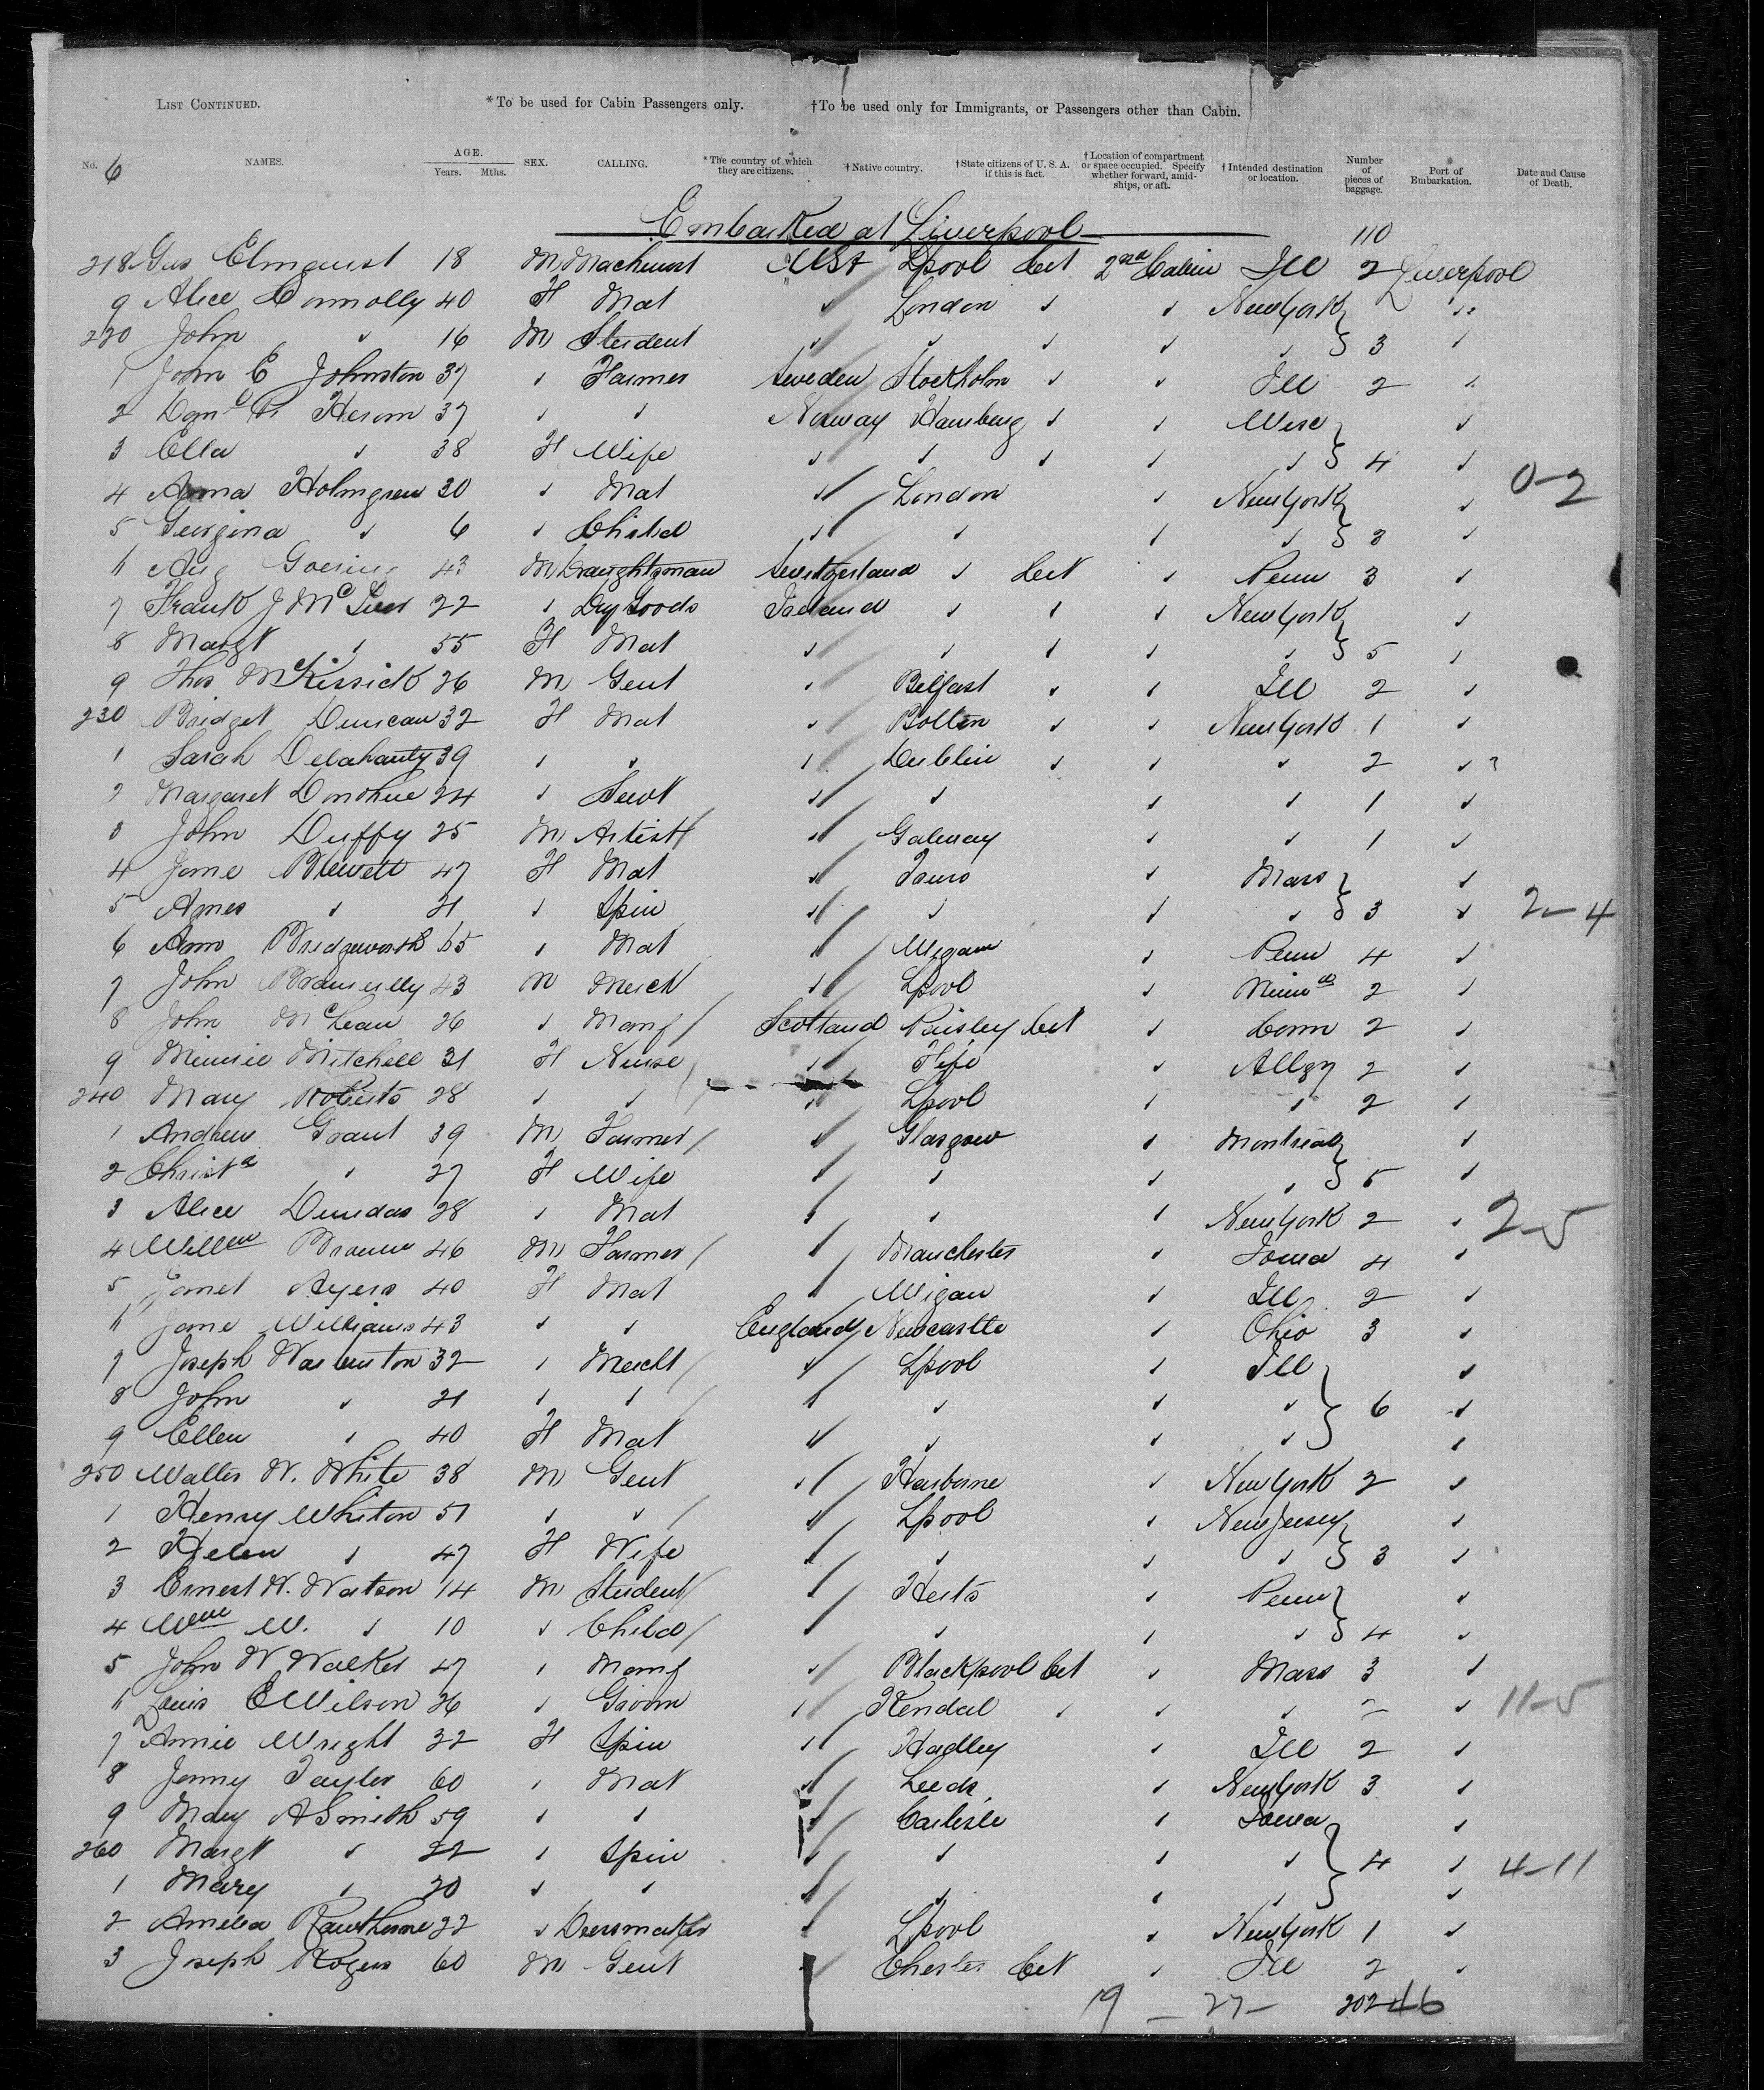 LIST CONTINUED. *To be used for Cabin Passengers only. †To be used only for Immigrants, or Passengers other than Cabin.
No. 6 NAMES. AGE. Years. Mths. SEX. CALLING. *The country of which they are citizens. †Native country. †State citizens of U. S. A. if this is fact. †Location of compartment or space occupied. Specify whether forward, amidships, or aft. †Intended destination or location. Number of pieces of baggage. * Port of Embarkation. Date and Cause of Death.
Embarked at Liverpool 110
218 Gus Elmquist 18 M Machinist USA Lpool Cit 2nd Cabin Ill 2 Liverpool
9 Alice Connolly 40 F Mat " London " " New York "
220 John " 16 M Student " " " " " 3 "
1 John E Johnston 37 " Farmer Sweden Stockholm " " Ill 2 "
2 37 " " Norway " " Wisc "
3 Ella " 38 F Wife " " " " " 4 "
4 Anna Holmgren 30 " Mat " London " New York " 0-2
5 Georgina " 6 " Child " " " " 3 "
6 Aug 43 M Draughtsman Switzerland " Cit " Penn 3 "
7 Frank J 22 " Dry Goods Ireland " " " New York "
8 Margt " 55 F Mat " " " " " 5 "
9 Thos McKissick 26 M Gent " Belfast " " Ill 2 "
230 Bridget Duncan 32 F Mat " Bolton " " New York 1 "
1 Sarah Delahanty 39 " " " Dublin " " " 2 "
2 Margaret Donohue 24 " Servt " " " " 1 "
3 John Duffy 25 M Artist " Galway " " 1 "
4 Jane Blewett 47 F Mat " Truro " Mass "
5 Agnes " 21 " Spin " " " " 3 " 2-4
6 Ann Bridgeworth 65 " Mat " Wigan " Penn 4 "
7 John 43 M Merch " Lpool " 2 "
8 John McLean 26 " Manf Scotland Paisley Cit " Conn 2 "
9 Minnie Mitchell 31 F Nurse " Fife " Allgy 2 "
240 Mary Roberts 28 " " " Lpool " " 2 "
1 Andrew Grant 39 M Farmer " Glasgow " Montreal "
2 Christa " 27 F Wife " " " " 5 "
3 Alice Dundas 28 " Mat " " " New York 2 " 2-5
4 Willm Brown 46 M Farmer " Manchester " Iowa 4 "
5 Janet Ayers 40 F Mat " Wigan " Ill 2 "
6 Jane Williams 43 " " England Newcastle " Ohio 3 "
7 Joseph Warburton 32 " Mercht " Lpool " Ill "
8 John " 21 " " " " " " 6 "
9 Ellen " 40 F Mat " " " " "
250 Walter W. White 38 M Gent " Harborne " New York 2 "
1 Henry Whiton 51 " " " Lpool " New Jersey "
2 Helen " 47 F Wife " " " " 3 "
3 Ernest W. Watson 14 M Student " Herts " Penn "
4 Wm W. " 10 " Child " " " " 4 "
5 John W Walker 47 " Manf " Blackpool Cit " Mass 3 "
6 Louis E Wilson 26 " Groom " Kendal " " " - " 11-5
7 Annie Wright 32 F Spin " Hadley " Ill 2 "
8 Jenny Taylor 60 " Mat " Leeds " New York 3 "
9 Mary A Smith 59 " " " Carlisle " Iowa "
260 Margt " 22 " Spin " " " " 4 " 4-11
1 Mary " 20 " " " " " " "
2 Amelia Rawthorne 22 " Dressmaker " Lpool " New York 1 "
3 Joseph Rogers 60 M Gent " Chester Cit " Ill 2 "
19 - 27 - 202 46